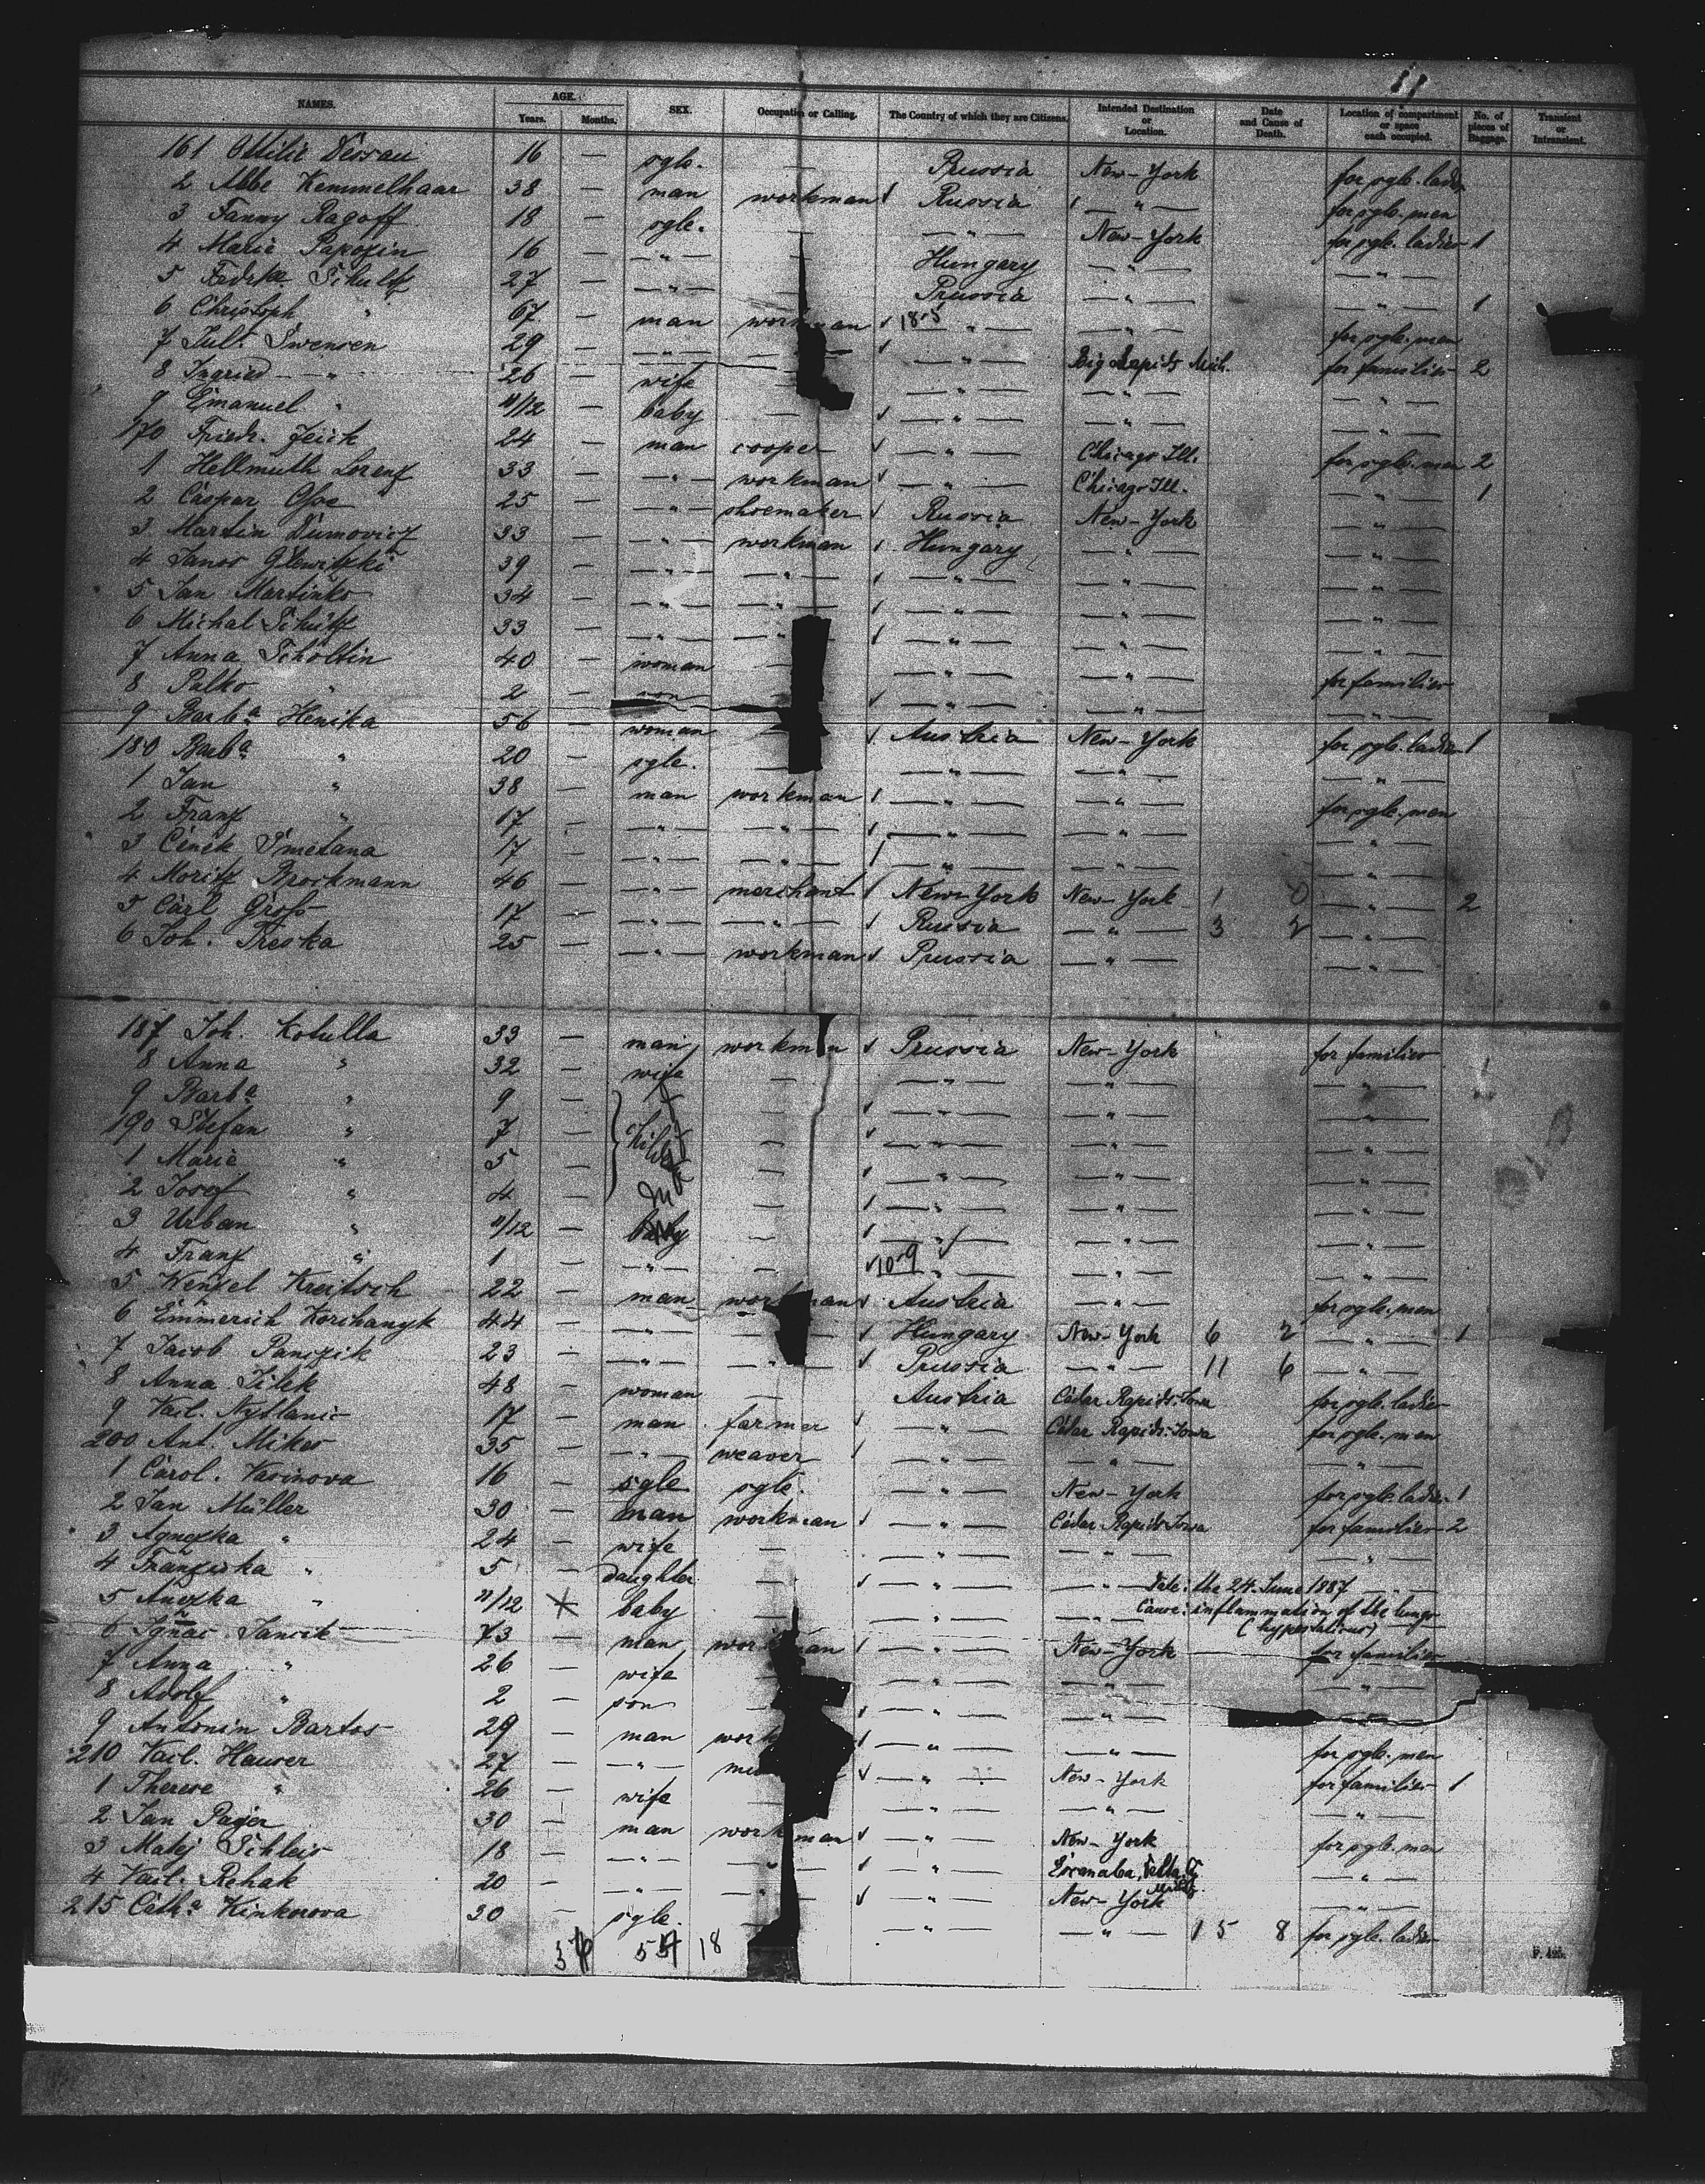 11
NAMES. AGE. Years. Months. SEX. Occupation or Calling. The Country of which they are Citizens. Intended Destination or Location. Date and Cause of Death. Location of compartment or space each occupied. No. of pieces of Baggage. Transient or Intransient.
161 Ottilie Dessau 16 — sgle. — Prussia New-York for sgle. ladies
2 Abbe Kemmelhaar 38 — man workman Russia — " — for sgle. men
3 Fanny Ragoff 18 — sgle. — — " — New-York for sgle. ladies 1
4 Marie Papozin 16 — — " — Hungary — " — — " —
5 Fredrke Schultz 27 — — " — Prussia — " — — " — 1
6 Christoph " 67 — man workman 18-5 — " — — " — for sgle. men
7 Jul. Swensen 29 — — " — — — " — Big Rapids Mich. for families 2
8 Ingried — " — 26 — wife — " — — " — — " —
9 Emanuel " 11/12 — baby — — " — — " — — " —
170 Friedr. Jeick 24 — man cooper — " — Chicago Ill. for sgle. men 2
1 Hellmuth Lorenz 33 — — " — workman — " — Chicago Ill. — " — 1
2 Caspar 25 — — " — shoemaker Russia New-York — " —
3 Martin Dumovicz 33 — — " — workman Hungary — " — — " —
4 Janos Glewitzki 39 — — " — — " — — " — — " — — " —
5 Jan Martinko 34 — — " — — " — — " — — " — — " —
6 Michal Schultz 33 — — " — — " — — " — — " — — " —
7 Anna Scholtin 40 — woman — — " — — " — for families
8 Palko " 2 — son — " — — " — — " —
9 Barba Henika 56 — woman Austria New-York for sgle. ladies 1
180 Barba " 20 — sgle. — " — — " — — " —
1 Jan " 38 — man workman — " — — " — for sgle. men
2 Franz " 17 — — " — — " — — " — — " — — " —
3 Cenek Smetana 17 — — " — — " — — " — — " — — " —
4 Moritz Brockmann 46 — — " — merchant New-York New-York 1 0 — " — 2
5 Carl Gross 17 — — " — — " — Russia — " — 3 2 — " —
6 Joh. Treska 25 — — " — workman Prussia — " — — " —
187 Joh. Kotulla 33 — man workman Prussia New-York for families
8 Anna " 32 — wife — — " — — " — — " —
9 Barba " 9 — — " — — " — — " —
190 Stefan " 7 — children — — " — — " — — " —
1 Marie " 5 — — — " — — " — — " —
2 Josef " 4 — — — " — — " — — " —
3 Urban " 11/12 — baby — — " — — " — — " —
4 Franz " 1 — — " — — 10-9 " — — " — — " —
5 Wenzel Kreitsch 22 — man workman Austria — " — for sgle. men
6 Emmerich Korihanyk 44 — — " — — Hungary New-York 6 2 — " — 1
7 Jacob Panczik 23 — — " — — " — Prussia — " — 11 6 — " —
8 Anna Jilek 48 — woman — Austria Cedar Rapids Iowa for sgle. ladies
9 Vacl. Nydlanic 17 — man farmer — " — Cedar Rapids Iowa for sgle. men
200 Ant. Mikes 35 — — " — weaver — " — — " — — " —
1 Carol. Vasinova 16 — sgle sgle. — " — New-York for sgle. ladies 1
2 Jan Müller 30 — man workman — " — Cedar Rapids Iowa for families 2
3 Agnezka " 24 — wife — — " — — " — — " —
4 Franziska " 5 — daughter — — " — — " — — " —
5 Anezka " 11/12 × baby — — " — — " — Date: the 24. June 1887 Cause: inflammation of the lungs
6 Ignac Jancik 73 — man workman — " — New-York for families
7 Anna " 26 — wife — " — — " — — " —
8 Adolf " 2 — son — " — — " — — " —
9 Antonin Bartos 29 — man work — " — — " — for sgle. men
210 Vacl. Hauser 27 — — " — — " — New-York for families 1
1 Therese " 26 — wife — — " — — " — — " —
2 Jan Pajer 30 — man workman — " — New-York for sgle. men
3 Matej Schleis 18 — — " — — " — — " — Escanaba, Delta Co — " —
4 Vacl. Rehak 20 — — " — — " — — " — New-York — " —
215 Catha Kinkorova 30 — sgle. — — " — — " — 15 8 for sgle. ladies
18
F. 425.